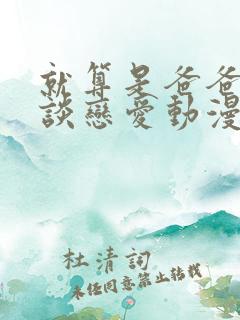 就算是爸爸
談戀愛動漫
杜清詞
未經同意禁止轉載